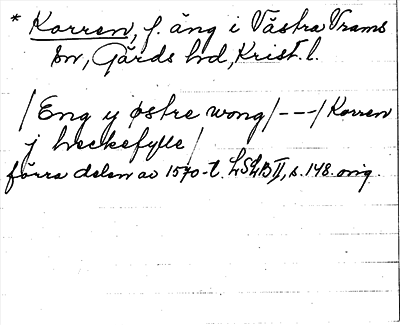 * Korren, f. äng i Västra Vrams
sn, Gärds hd, Krist. l.
/Eng y østre wong/---/Korren
j heckefylle/
förra delen av 1570-t. LSLB II, s. 148. orig.